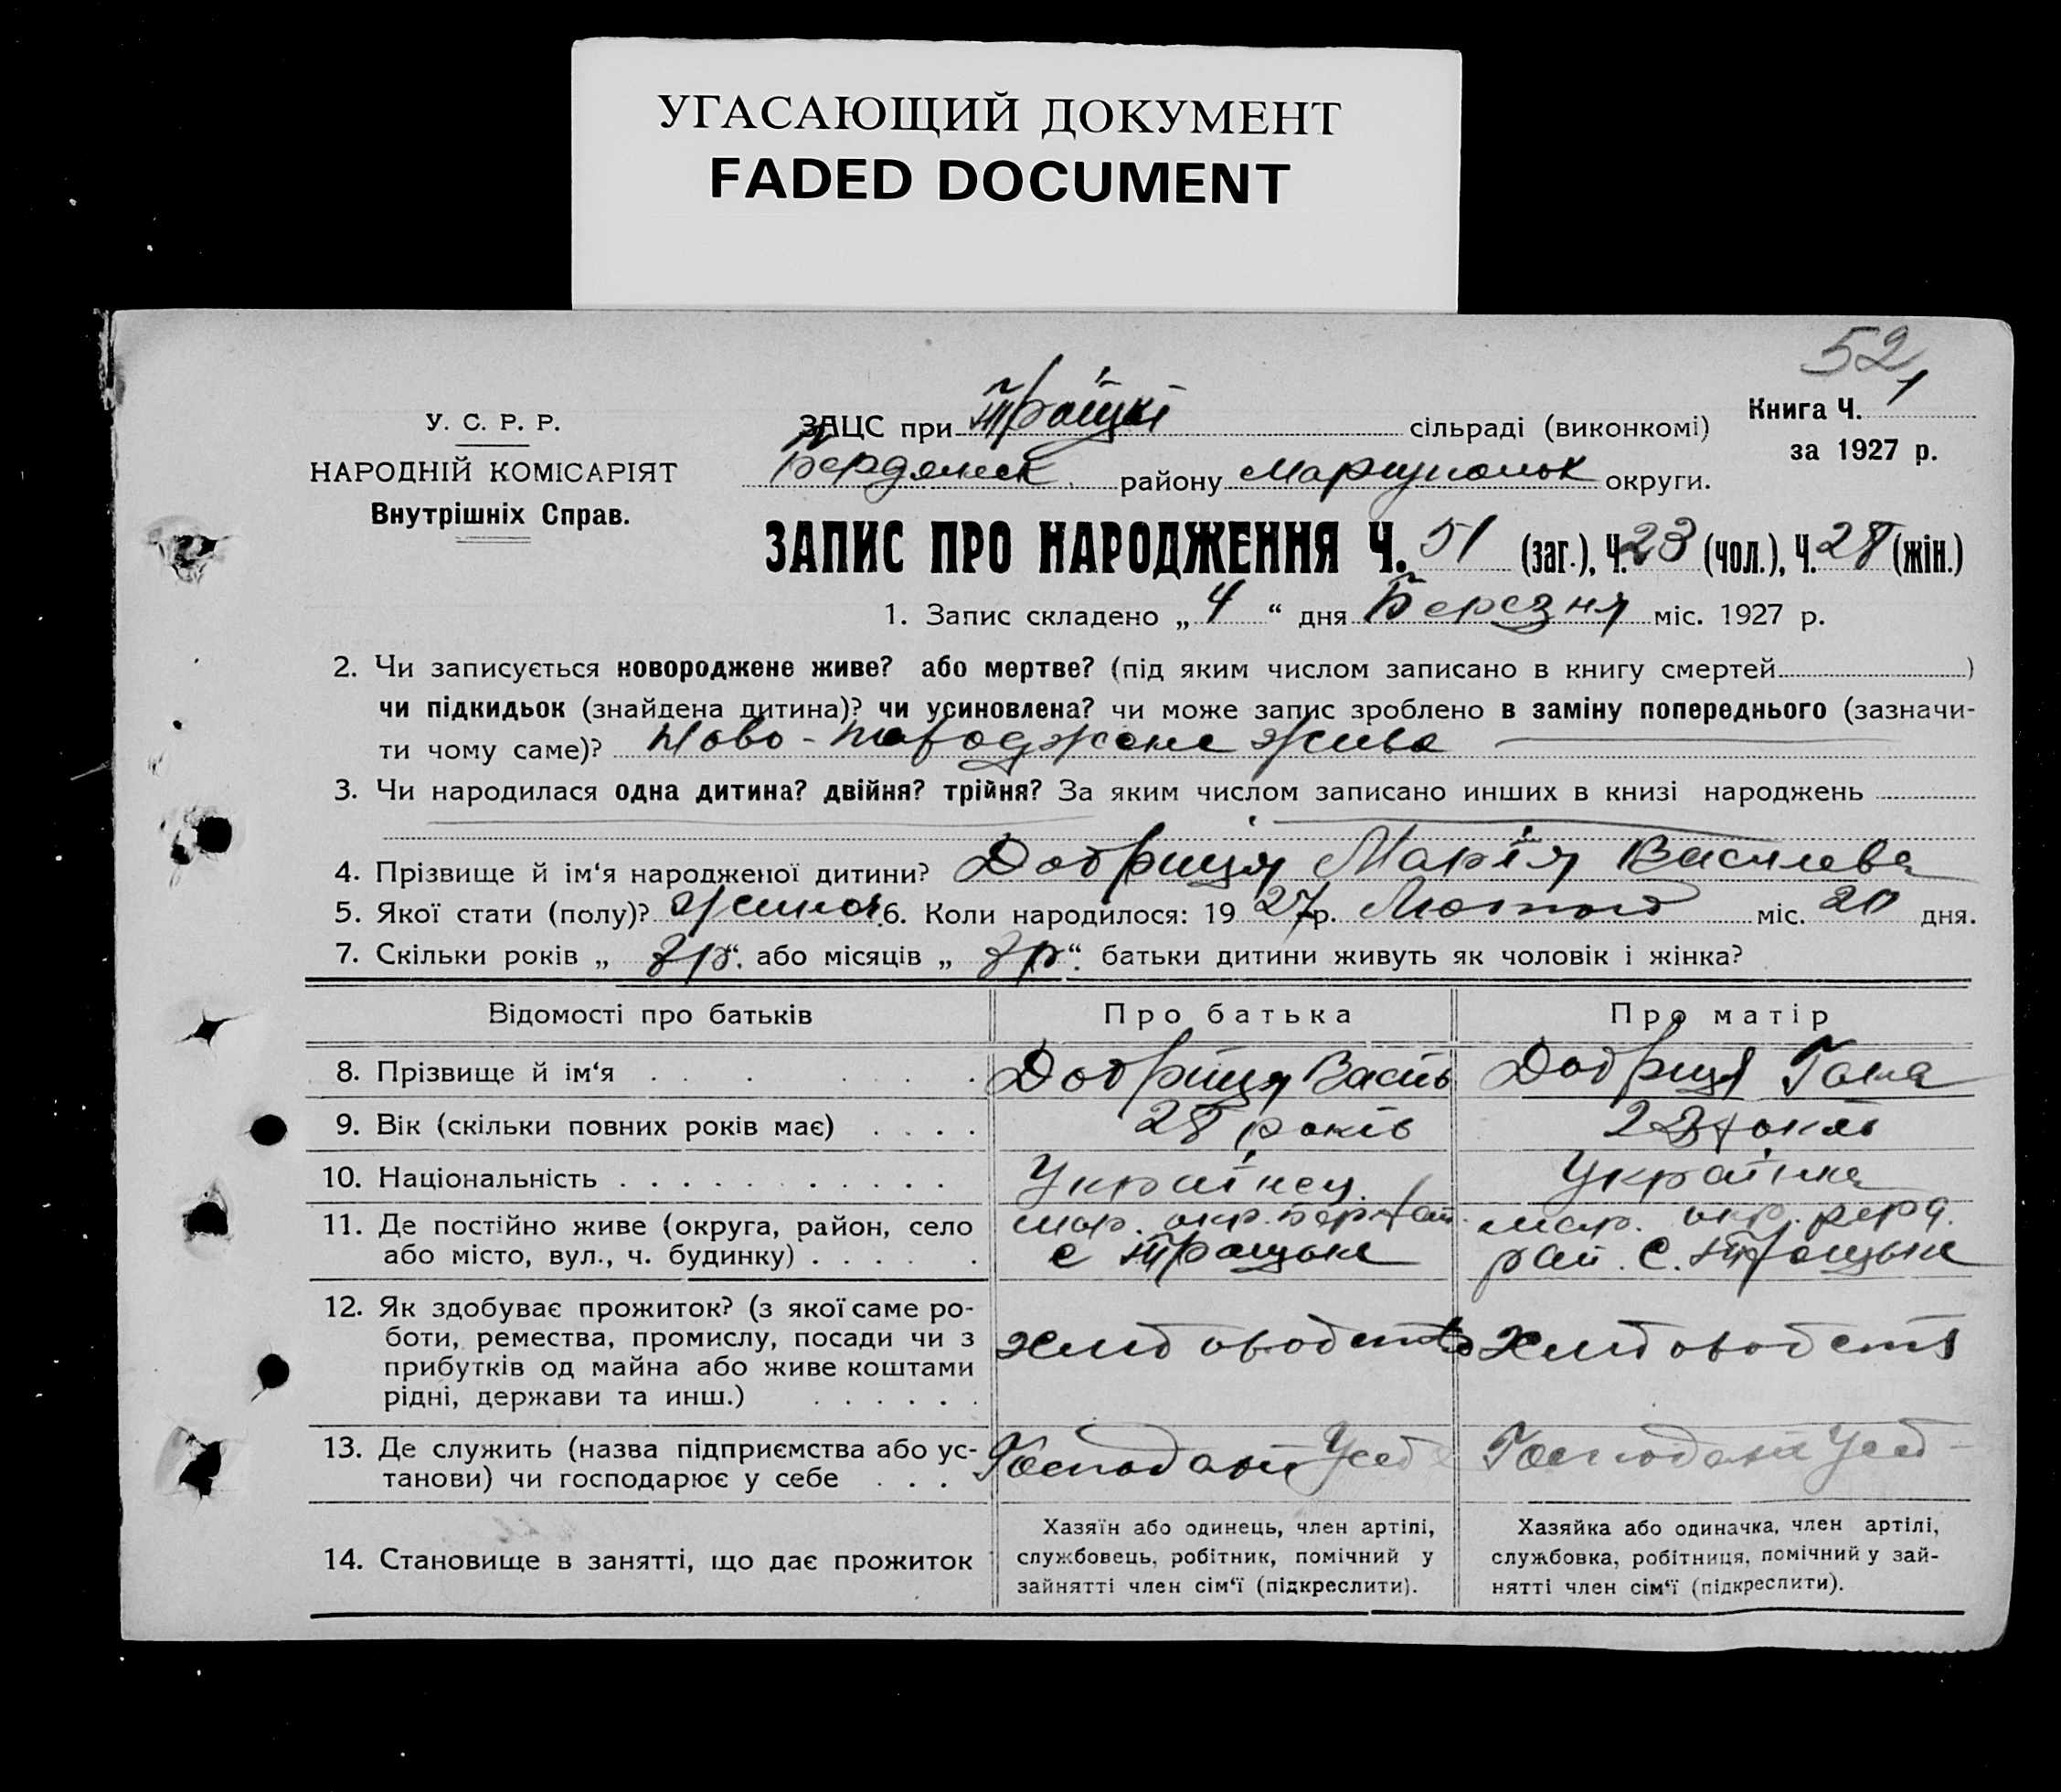 УГАСАЮЩИЙ ДОКУМЕНТ
FADED DOCUMENT
52
У. С. Р. Р.
НАРОДНІЙ КОМІСАРІЯТ
Внутрішніх Справ.
ЗАЦС при Троїцкі сільраді (виконкомі)
Бердянск. району Мариупольск округи.
Книга Ч. 1
за 1927 р.
ЗАПИС ПРО НАРОДЖЕННЯ Ч. 51 (заг.), Ч. 23 (чол.), Ч. 28 (жін.)
1. Запис складено „ 4 “ дня Березня міс. 1927 р.
2. Чи записується новороджене живе? або мертве? (під яким числом записано в книгу смертей )
чи підкидьок (знайдена дитина)? чи усиновлена? чи може запис зроблено в заміну попереднього (зазначи-
ти чому саме)? Ново-народжене жива
3. Чи народилася одна дитина? двійня? трійня? За яким числом записано инших в книзі народжень
4. Прізвище й ім‘я народженої дитини? Добриця Марія Василева
5. Якої стати (полу)? жіноч. 6. Коли народилося: 19 27 р. Лютого міс. 20 дня.
7. Скільки років „ “. або місяців „ “. батьки дитини живуть як чоловік і жінка?
Відомості про батьків
Про батька
Про матір
8. Прізвище й ім‘я . . . . . . .
Добриця Василь
Добриця Гана
9. Вік (скільки повних років має) . . . .
28 років
років
10. Національність . . . . . . . . . . .
Українец.
Українка
11. Де постійно живе (округа, район, село
або місто, вул., ч. будинку) . . . . .
мар. окр. Бер рай
с Троіцьке
мар. окр. берд.
рай. с. Троіцьке
12. Як здобуває прожиток? (з якої саме ро-
боти, ремества, промислу, посади чи з
прибутків од майна або живе коштами
рідні, держави та инш.) . . . . . .
Хлиборобство
Хлиборобств
13. Де служить (назва підприємства або ус-
танови) чи господарює у себе . . .
Господарі Усеб
Господарі Усеб
14. Становище в занятті, що дає прожиток
Хазяїн або одинець, член артілі,
службовець, робітник, помічний у
зайнятті член сім‘ї (підкреслити).
Хазяйка або одиначка, член артілі,
службовка, робітниця, помічний у зай-
нятті член сім‘ї (підкреслити).